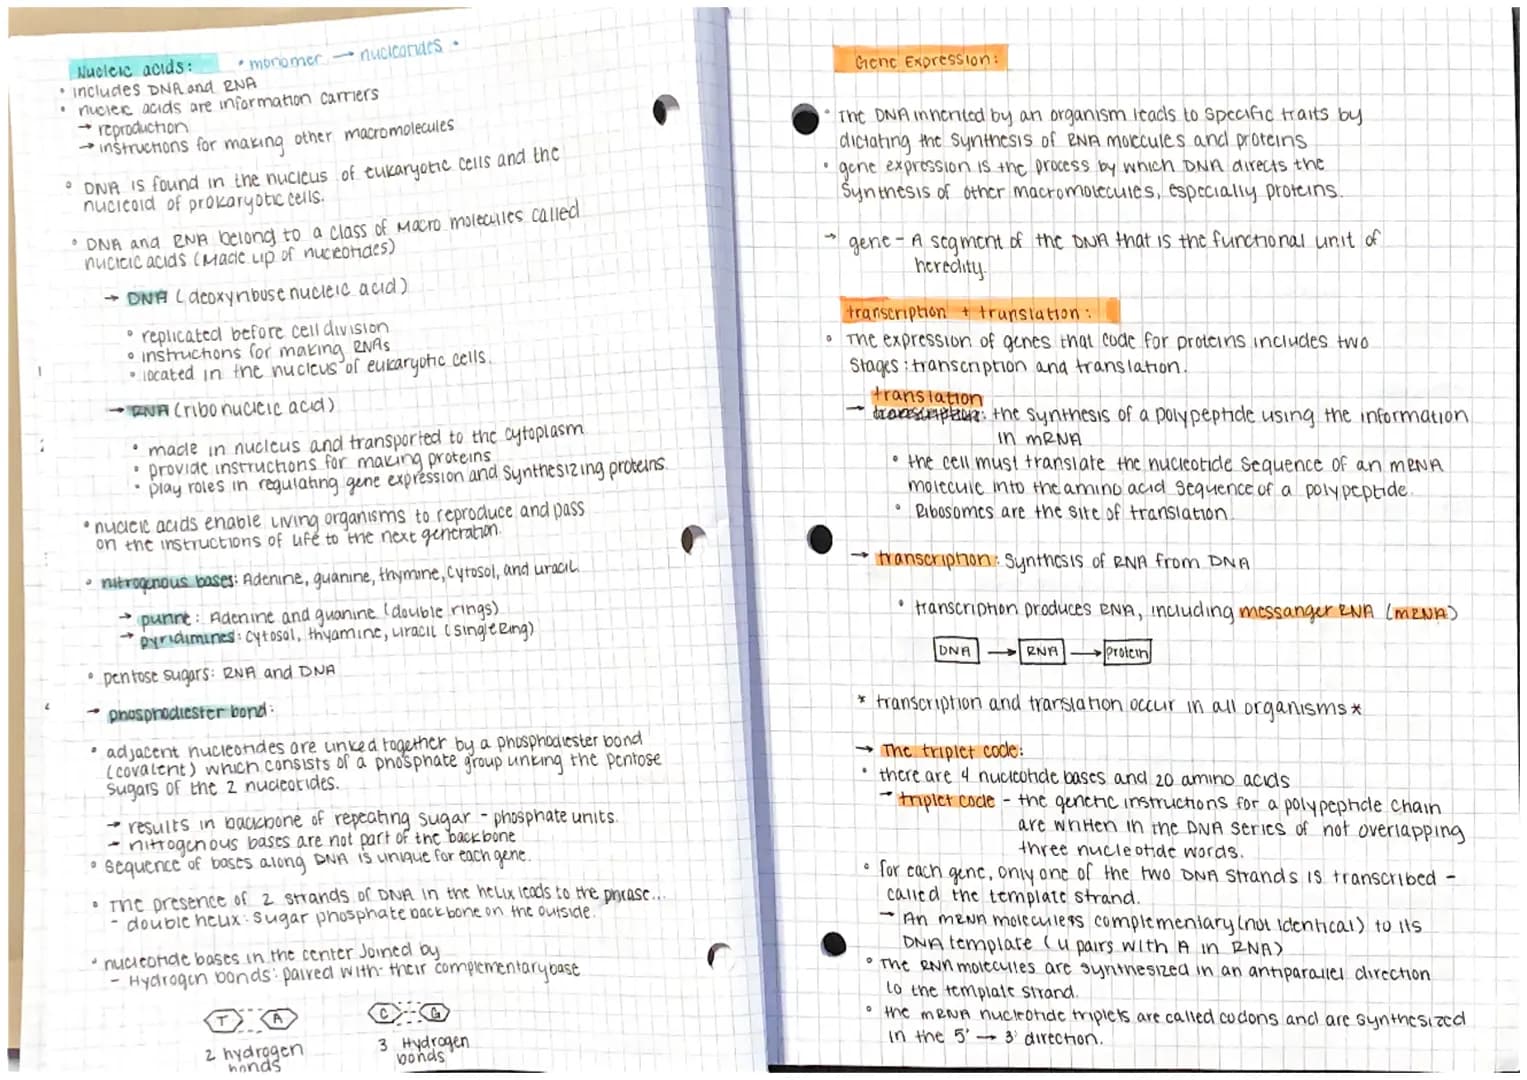 Nucleic acids:
• monomer → nucleotides •
• includes DNA and RNA
• nucleic acids are information carriers
→ reproduction
→ instructions for making other macromolecules
• DNA is found in the nucleus of eukaryotic cells and the
nucleoid of prokaryotic cells.
• DNA and RNA belong to a class of Macro molecules called
nucleic acids (Made up of nucleotides)
→ DNA (deoxyribose nucleic acid)
• replicated before cell division
• instructions for making RNAs
• located in the nucleus of eukaryotic cells.
→ RNA (ribonucleic acid)
• made in nucleus and transported to the cytoplasm
• provide instructions for making proteins
• play roles in regulating gene expression and synthesizing proteins.
• nucleic acids enable living organisms to reproduce and pass
on the instructions of life to the next generation.
• nitrogenous bases: Adenine, guanine, thymine, Cytosol, and uracil
→ purine: Adenine and guanine (double rings)
→ pyridimines: Cytosol, thyamine, uracil (single Ring)
• pentose sugars: RNA and DNA
→ phosphodiester bond:
• adjacent nucleotides are linked together by a phosphodiester bond
(covalent) which consists of a phosphate group linking the pentose
sugars of the 2 nucleotides.
→ results in backbone of repeating sugar - phosphate units.
→ nitrogenous bases are not part of the backbone
• sequence of bases along DNA is unique for each gene.
• The presence of 2 strands of DNA in the helix leads to the phrase...
- double helix: sugar phosphate backbone on the outside.
• nucleotide bases in the center Joined by
- Hydrogen bonds: paired with their complementary base
T A C G
2 hydrogen
bonds
3 Hydrogen
bonds
Gene Expression:
• The DNA inherited by an organism leads to specific traits by
dictating the synthesis of RNA molecules and proteins
• gene expression is the process by which DNA directs the
synthesis of other macromolecules, especially proteins.
→ gene - A segment of the DNA that is the functional unit of
heredity.
transcription + translation:
• The expression of genes that code for proteins includes two
stages: transcription and translation.
translation
→ transcription: the synthesis of a polypeptide using the information
in mRNA
• the cell must translate the nucleotide sequence of an mRNA
molecule into the amino acid sequence of a polypeptide.
• Ribosomes are the site of translation
→ transcription: Synthesis of RNA from DNA
• transcription produces RNA, including messanger RNA (mRNA)
DNA → RNA → protein
* transcription and translation occur in all organisms *
→ The triplet code:
• there are 4 nucleotide bases and 20 amino acids
→ triplet code - the genetic instructions for a polypeptide chain
are written in the DNA series of not overlapping
three nucleotide words.
• for each gene, only one of the two DNA strands is transcribed -
called the template strand.
→ An mRNA molecule is complementary (not identical) to its
DNA template (U pairs with A in RNA)
• The RNA molecules are synthesized in an antiparallel direction
to the template strand.
• the mRNA nucleotide triplets are called codons and are synthesized
in the 5' → 3' direction.